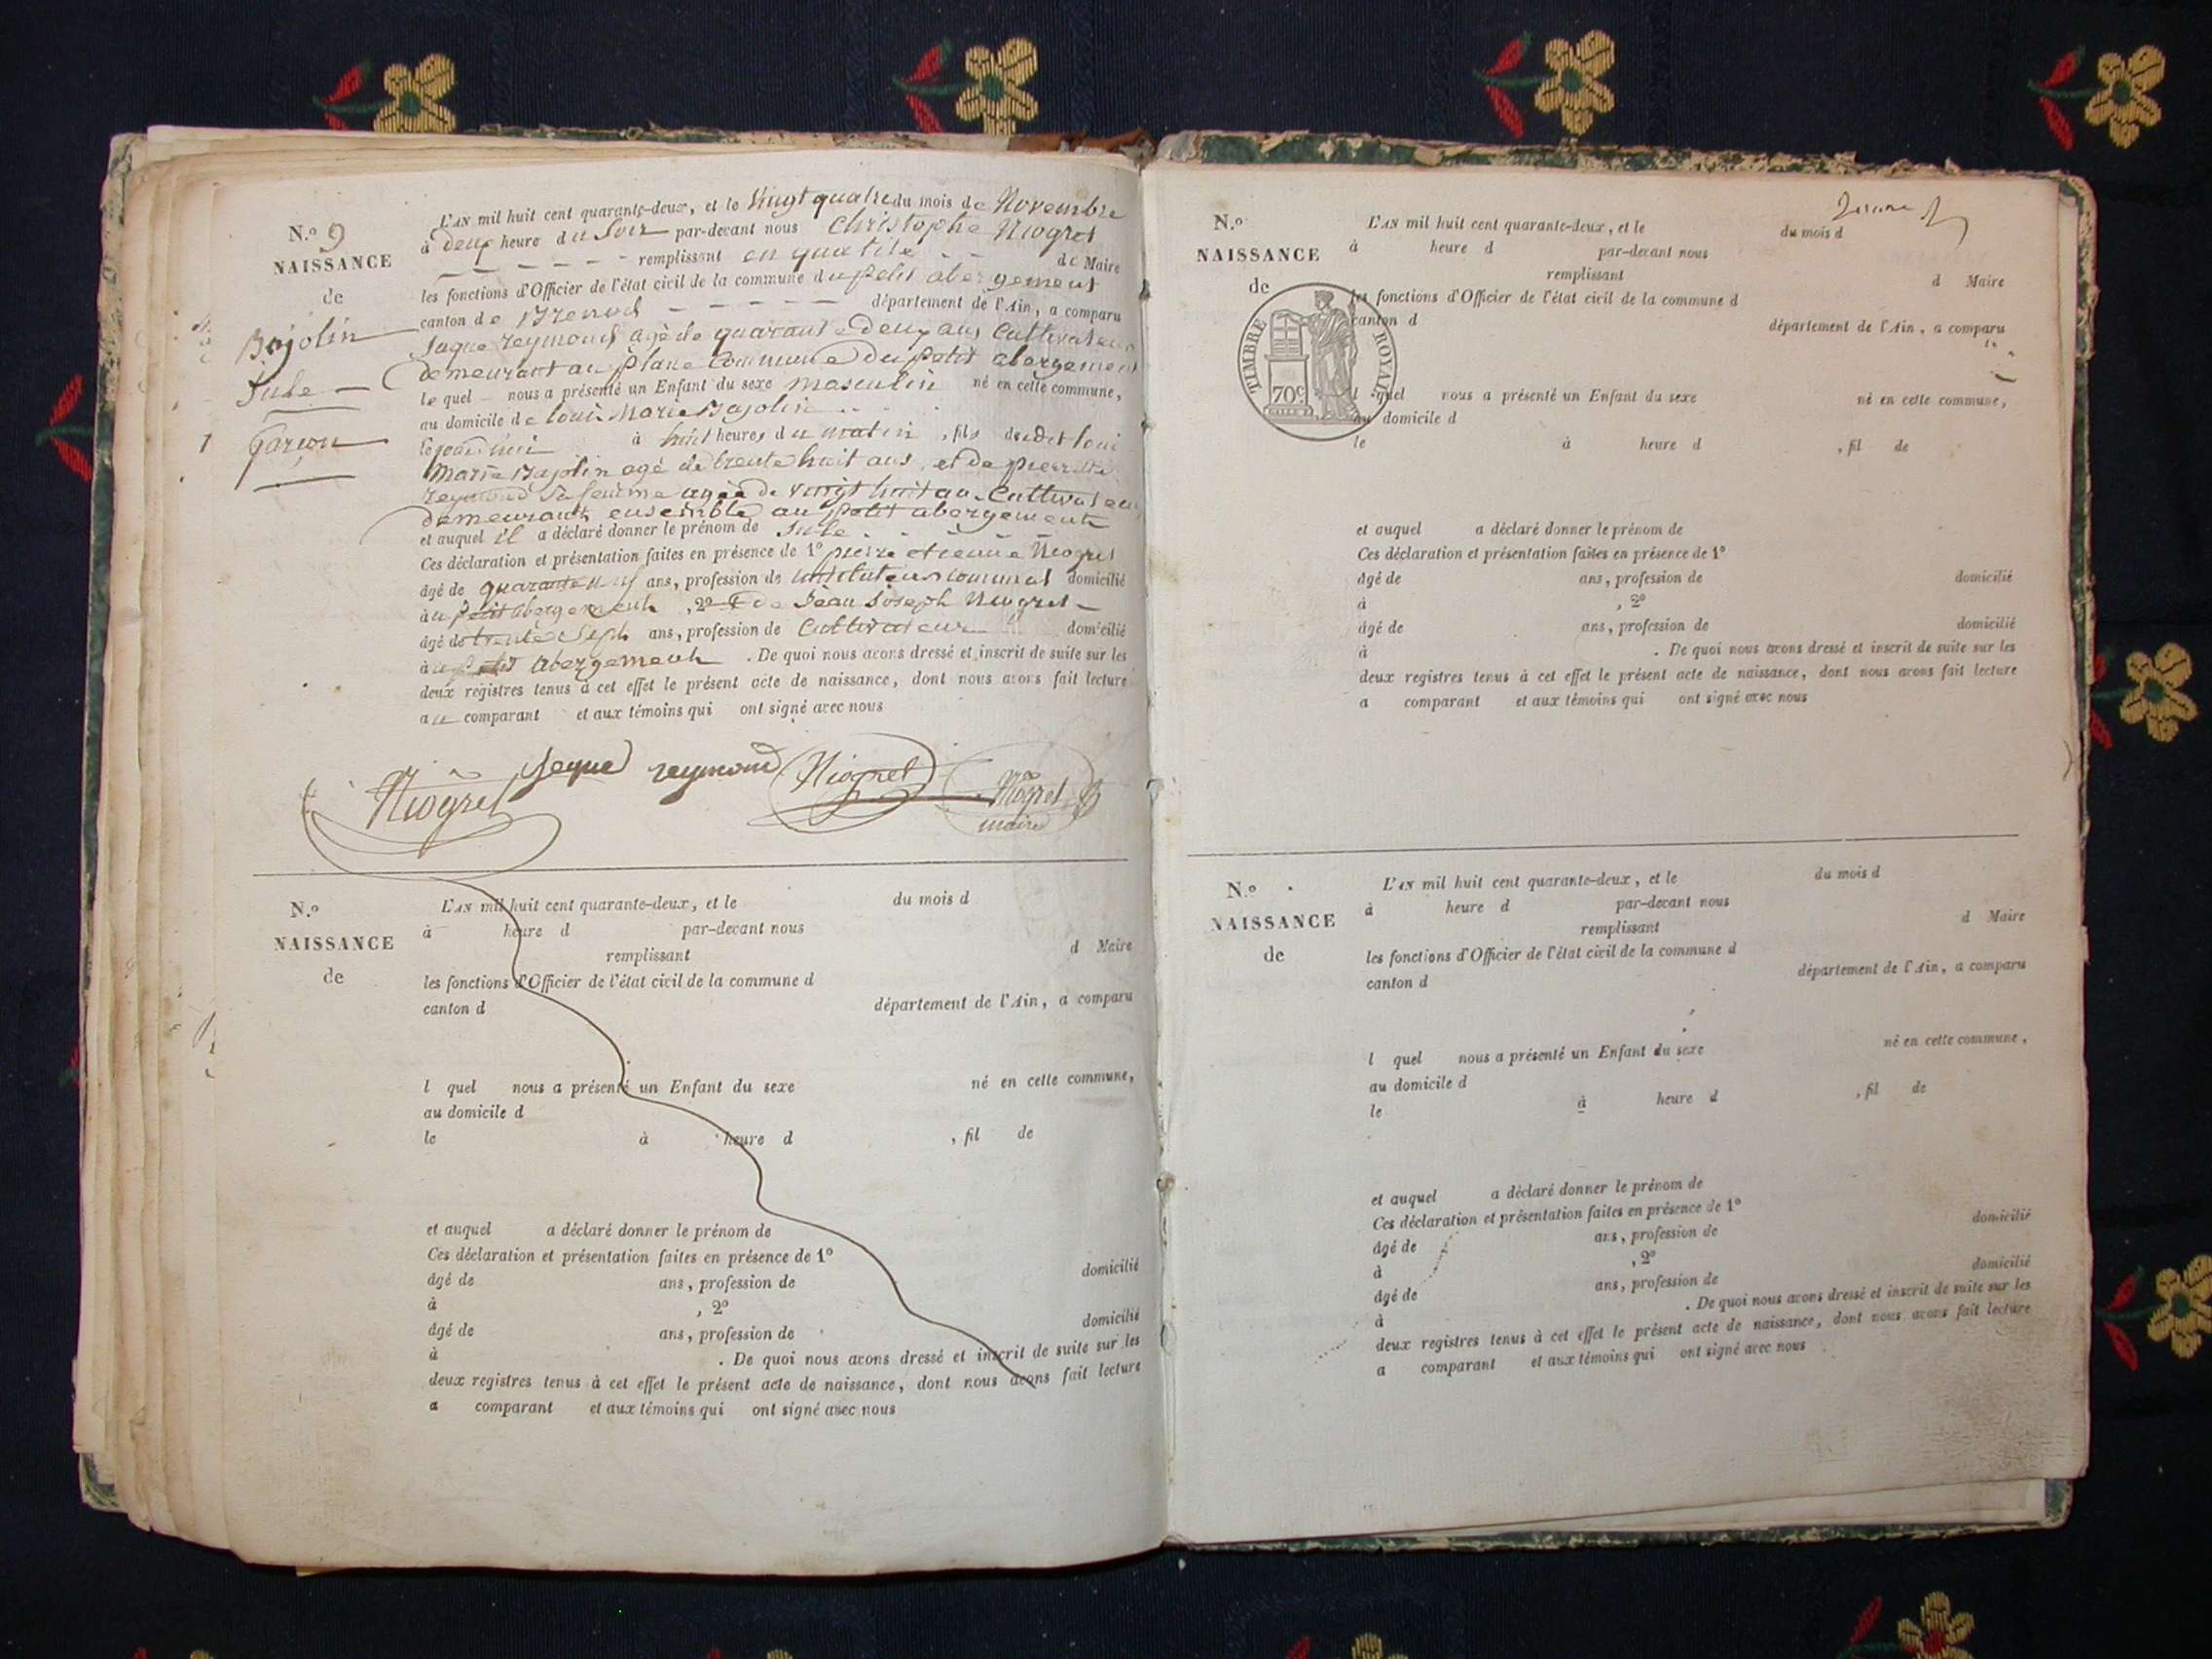 N.º 9
NAISSANCE
de
Bajolin
Jule
Garçon
1
L'AN mil huit cent quarante-deux, et le vingt quatre du mois de Novembre
à deux heure du soir par-devant nous Christophe Niogret
remplissant en qualité de Maire
les fonctions d'Officier de l'état civil de la commune du petit abergement
canton de Brenod département de l'Ain, a comparu
Jaque reymond agé de quarante deux ans Cultivateur
demeurant au plane Commune du petit abergement
le quel nous a présenté un Enfant du sexe masculin né en cette commune,
au domicile de Loui Marie Bajolin
à huit heures du matin, fils dudit Loui
Marie Bajolin agé de trente huit ans, et de pierrette
reymond Sa femme agée de vingt huit an Cultivateur
demeurant ensemble au petit abergement
et auquel il a déclaré donner le prénom de Jule
Ces déclaration et présentation faites en présence de 1º pierre etienne Niogret
âgé de quarante neuf ans, profession de instituteur communal domicilié
au petit abergement, 2º de Jean Joseph Niogret
âgé de trente Sept ans, profession de Cultivateur domicilié
au petit abergement. De quoi nous avons dressé et inscrit de suite sur les
deux registres tenus à cet effet le présent acte de naissance, dont nous avons fait lecture
au comparant et aux témoins qui ont signé avec nous
Jaque reymond Niogret
Niogret Niogret
maire
N.º
NAISSANCE
de
L'AN mil huit cent quarante-deux, et le du mois d
à heure d par-devant nous
remplissant d Maire
les fonctions d'Officier de l'état civil de la commune d
canton d département de l'Ain, a comparu
l quel nous a présenté un Enfant du sexe né en cette commune,
au domicile d
le à heure d , fil de
et auquel a déclaré donner le prénom de
Ces déclaration et présentation faites en présence de 1º
âgé de ans, profession de domicilié
à , 2º
âgé de ans, profession de domicilié
à . De quoi nous avons dressé et inscrit de suite sur les
deux registres tenus à cet effet le présent acte de naissance, dont nous avons fait lecture
a comparant et aux témoins qui ont signé avec nous
N.º
NAISSANCE
de
TIMBRE ROYAL
70c
L'AN mil huit cent quarante-deux, et le du mois d
à heure d par-devant nous
remplissant d Maire
les fonctions d'Officier de l'état civil de la commune d
canton d département de l'Ain, a comparu
l quel nous a présenté un Enfant du sexe né en cette commune,
au domicile d
le à heure d , fil de
et auquel a déclaré donner le prénom de
Ces déclaration et présentation faites en présence de 1º
âgé de ans, profession de domicilié
à , 2º
âgé de ans, profession de domicilié
à . De quoi nous avons dressé et inscrit de suite sur les
deux registres tenus à cet effet le présent acte de naissance, dont nous avons fait lecture
a comparant et aux témoins qui ont signé avec nous
N.º
NAISSANCE
de
L'AN mil huit cent quarante-deux, et le du mois d
à heure d par-devant nous
remplissant d Maire
les fonctions d'Officier de l'état civil de la commune d
canton d département de l'Ain, a comparu
l quel nous a présenté un Enfant du sexe né en cette commune,
au domicile d
le à heure d , fil de
et auquel a déclaré donner le prénom de
Ces déclaration et présentation faites en présence de 1º
âgé de ans, profession de domicilié
à , 2º
âgé de ans, profession de domicilié
à . De quoi nous avons dressé et inscrit de suite sur les
deux registres tenus à cet effet le présent acte de naissance, dont nous avons fait lecture
a comparant et aux témoins qui ont signé avec nous